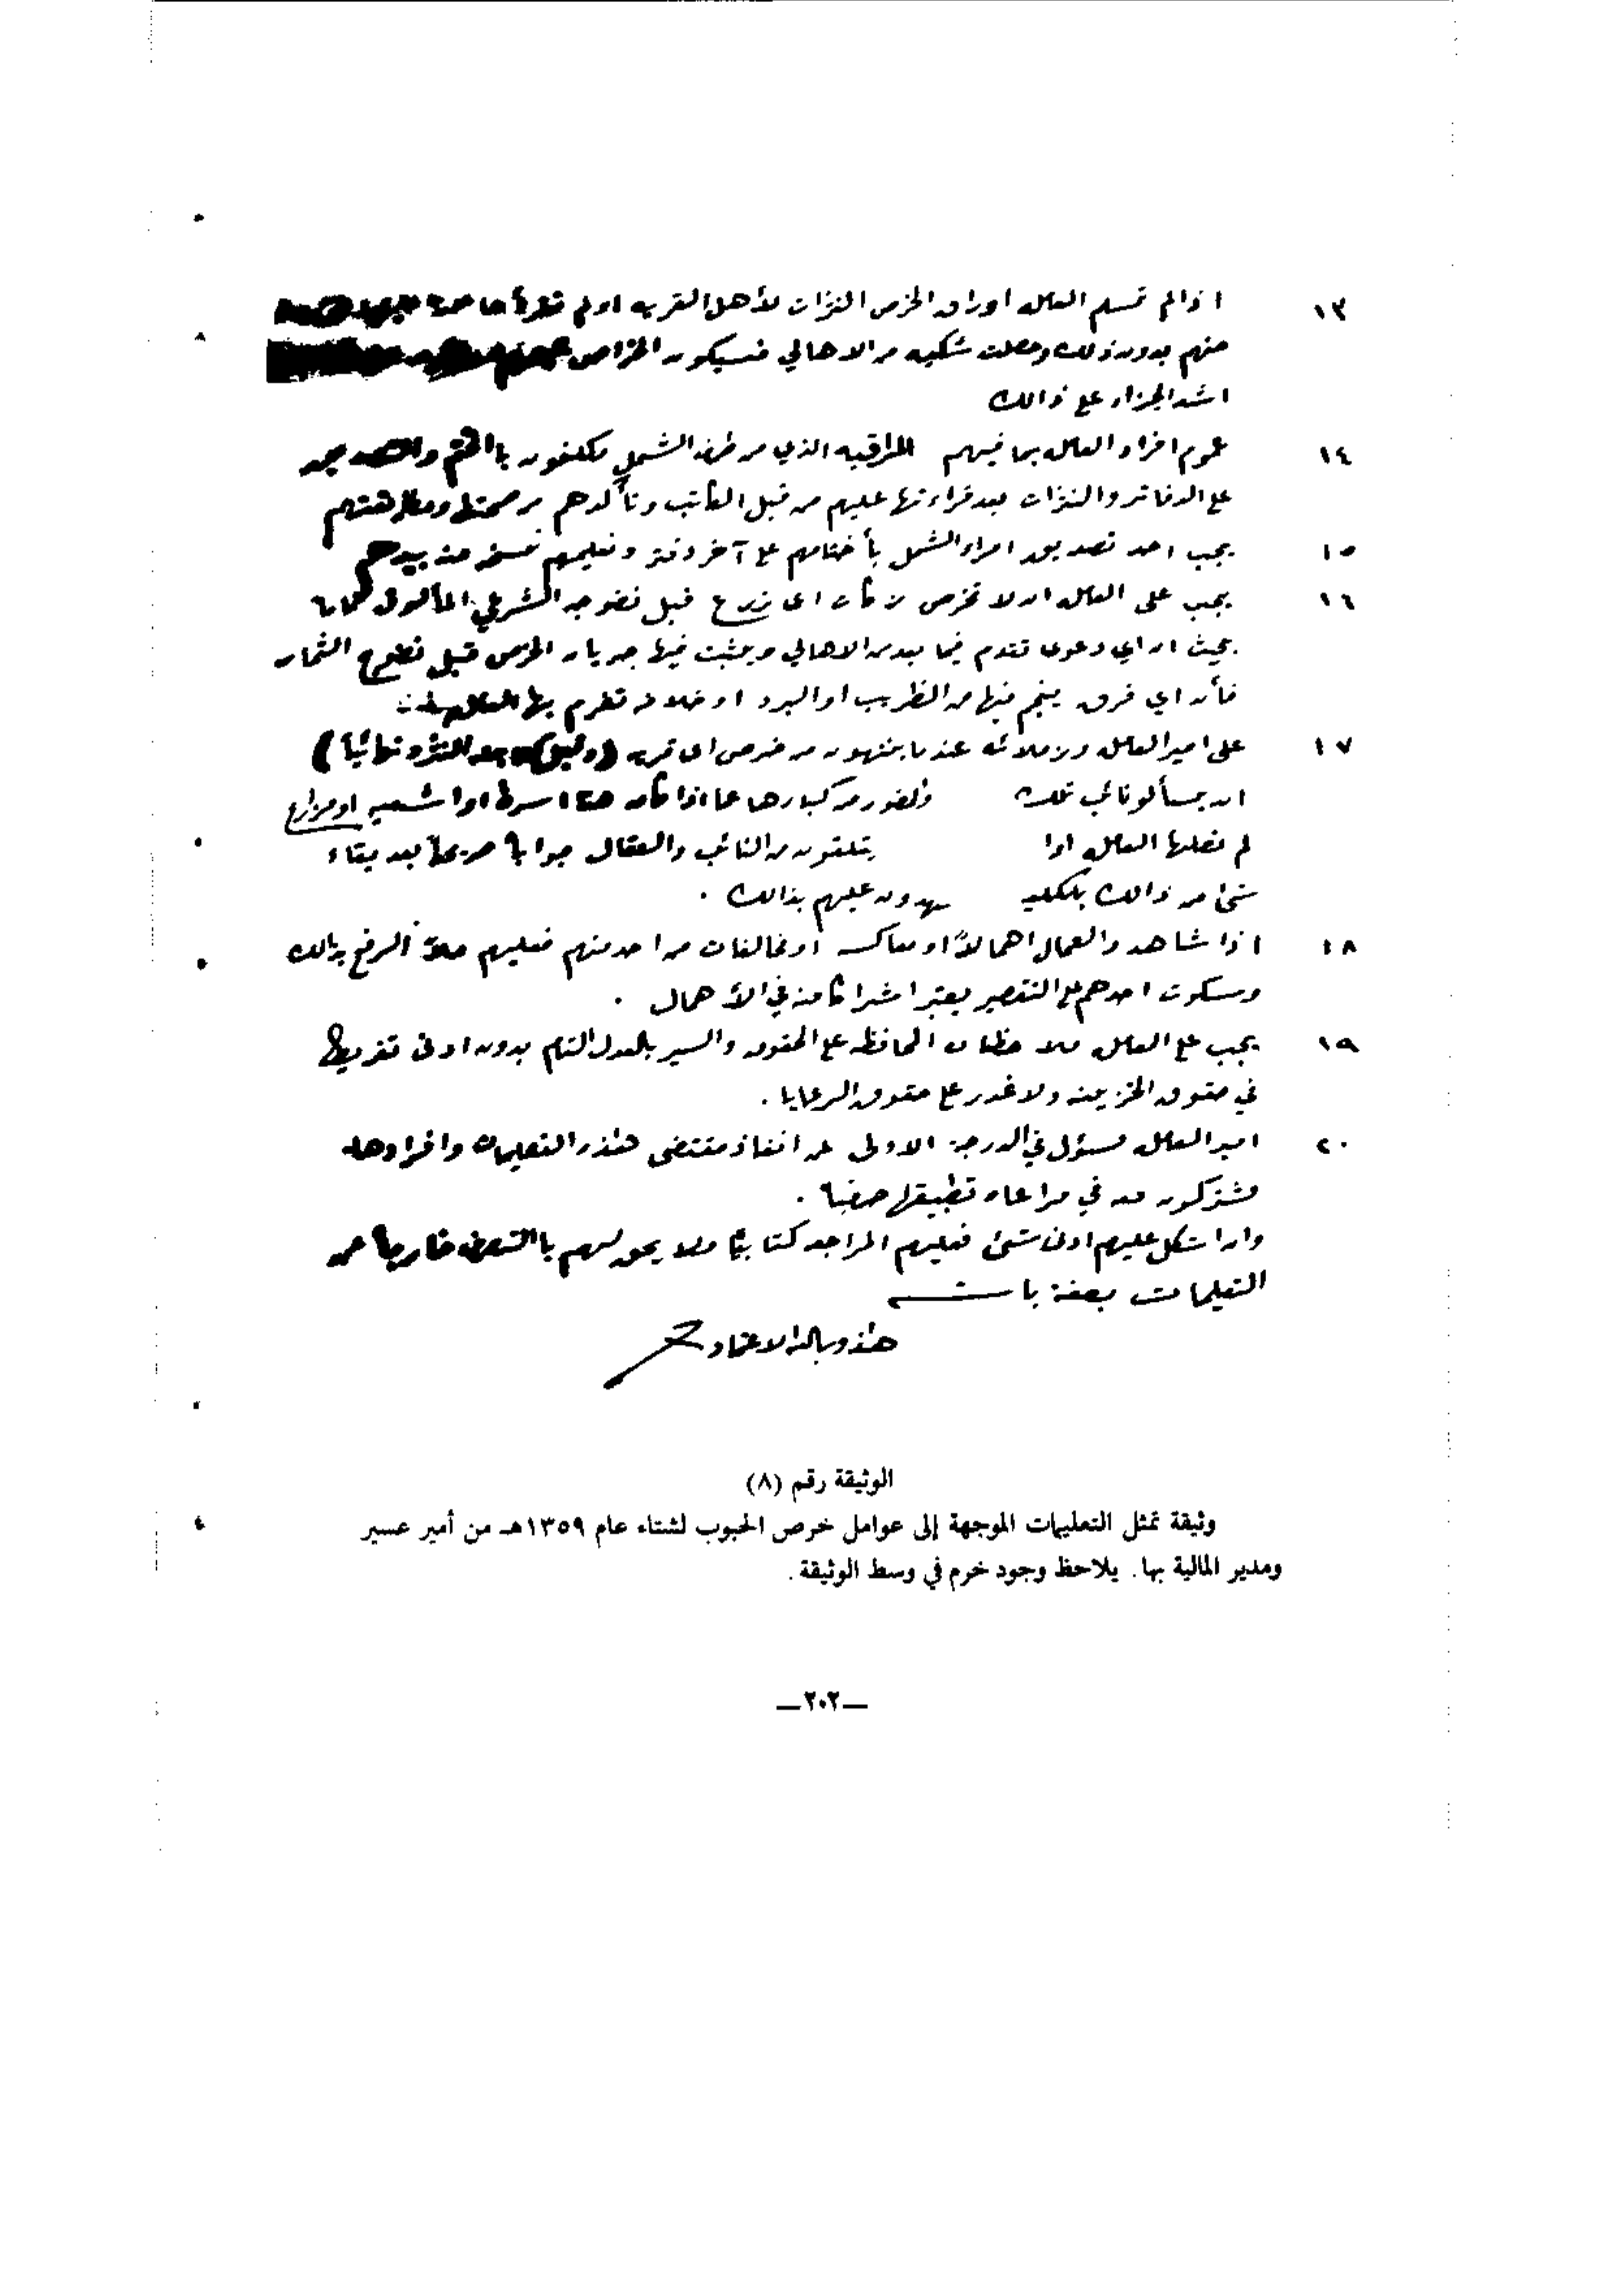 ١٣ اذا لم تسلم العامله اوراق الخرص النزات لأهل القريه او لم
منهم بدون ذلك وحصلت شكيه من الاهالي فسيكون الخراص
اشد الجزاء على ذالك
١٤ عموم افراد العامله بما فيهم المراقبه الذي من طرف الشمل مكلفون باالختم والتصديق
على الدفاتر والنزات بعد قراءتها عليهم من قبل الكاتب وتأكدهم من صحتها
١٥ يجب احد تصديق امراء الشمل بأختامهم على آخر دفتر وتعليمهم
١٦ يجب على العامله ان لا تخرص اى زرع قبل نضوجه الشرعي المألوف
بحيث ان اي دعوى تقدم فيما بعد من الاهالي ويثبت فيها جريان الخرص قبل نضوج الثمار
فأن اي فرق ينجم فيها من الضريب او البرد او خلافه تغرم بها العامله
١٧ على امير العامله وزملائه عندما ينتهون من خرص اى قريه
ان يسألو نائب تلك من كبارها عما اذا او مزارع
لم تصلها العامله اوا يتلقون من النائب والعقال جوابا صريحا بعد بقاء
شئ من ذالك بلكليه يهدون عليهم بذالك .
١٨ اذا شاهد والعمال اهمالاً او معاكسه او مخالفات من احد منهم فعليهم الرفع بذالك
وسكوت احدهم على التقصير يعتبر اشتراكا منه في الأهمال .
١٩ يجب على العامله ملاحظات المحافظه على الحقوق والسير بالعدل التام بدون ادنى تفريط
في حقوق الخزينه ولا غدر على حقوق الرعايا .
٢٠ امير العامله مسئول في الدرجة الاولى عن انفاذ مقتضى هذه التعليمات وافراد
مشتركون معه في مراعاه تطبيقها .
واذا شكل عليهم ادنى شئ فعليهم المراجعه كتابيًا ولا يحق لهم باالتصرف خارجاً عن
التعليمات بصفة باته
هذا وبالله الاعتماد
الوثيقة رقم (٨)
وثيقة تمثل التعليمات الموجهة إلى عوامل خرص الحبوب لشتاء عام ١٣٥٩هـ من أمير عسير
ومدير المالية بها. يلاحظ وجود خرم في وسط الوثيقة.
—٢٠٢—